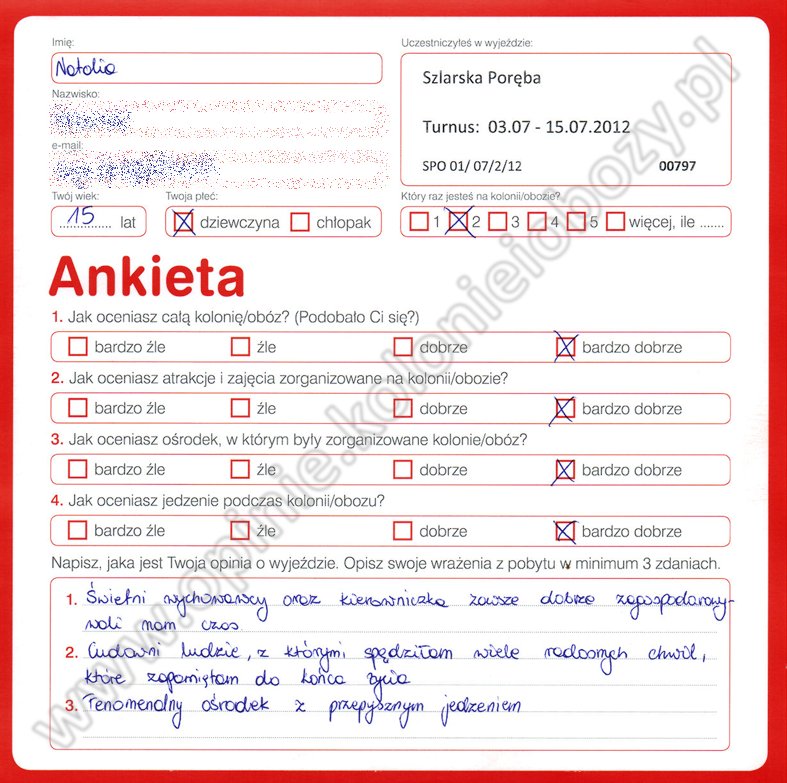 Imię:
Natalia
Nazwisko:
e-mail:
Twój wiek:
15 lat
Twoja płeć:
dziewczyna chłopak
Uczestniczyłeś w wyjeździe:
Szlarska Poręba
Turnus: 03.07 - 15.07.2012
SPO 01/ 07/2/12 00797
Który raz jesteś na kolonii/obozie?
1 2 3 4 5 więcej, ile .......
Ankieta
1. Jak oceniasz całą kolonię/obóz? (Podobało Ci się?)
bardzo źle źle dobrze bardzo dobrze
2. Jak oceniasz atrakcje i zajęcia zorganizowane na kolonii/obozie?
bardzo źle źle dobrze bardzo dobrze
3. Jak oceniasz ośrodek, w którym były zorganizowane kolonie/obóz?
bardzo źle źle dobrze bardzo dobrze
4. Jak oceniasz jedzenie podczas kolonii/obozu?
bardzo źle źle dobrze bardzo dobrze
Napisz, jaka jest Twoja opinia o wyjeździe. Opisz swoje wrażenia z pobytu w minimum 3 zdaniach.
1. Świetni wychowawcy oraz kierowniczka zawsze dobrze zagospodarowy-
wali nam czas
2. Cudowni ludzie, z którymi spędziłam wiele radosnych chwil,
które zapamiętam do końca życia
3. Fenomenalny ośrodek z przepysznym jedzeniem
www.opinie.kolonieiobozy.pl